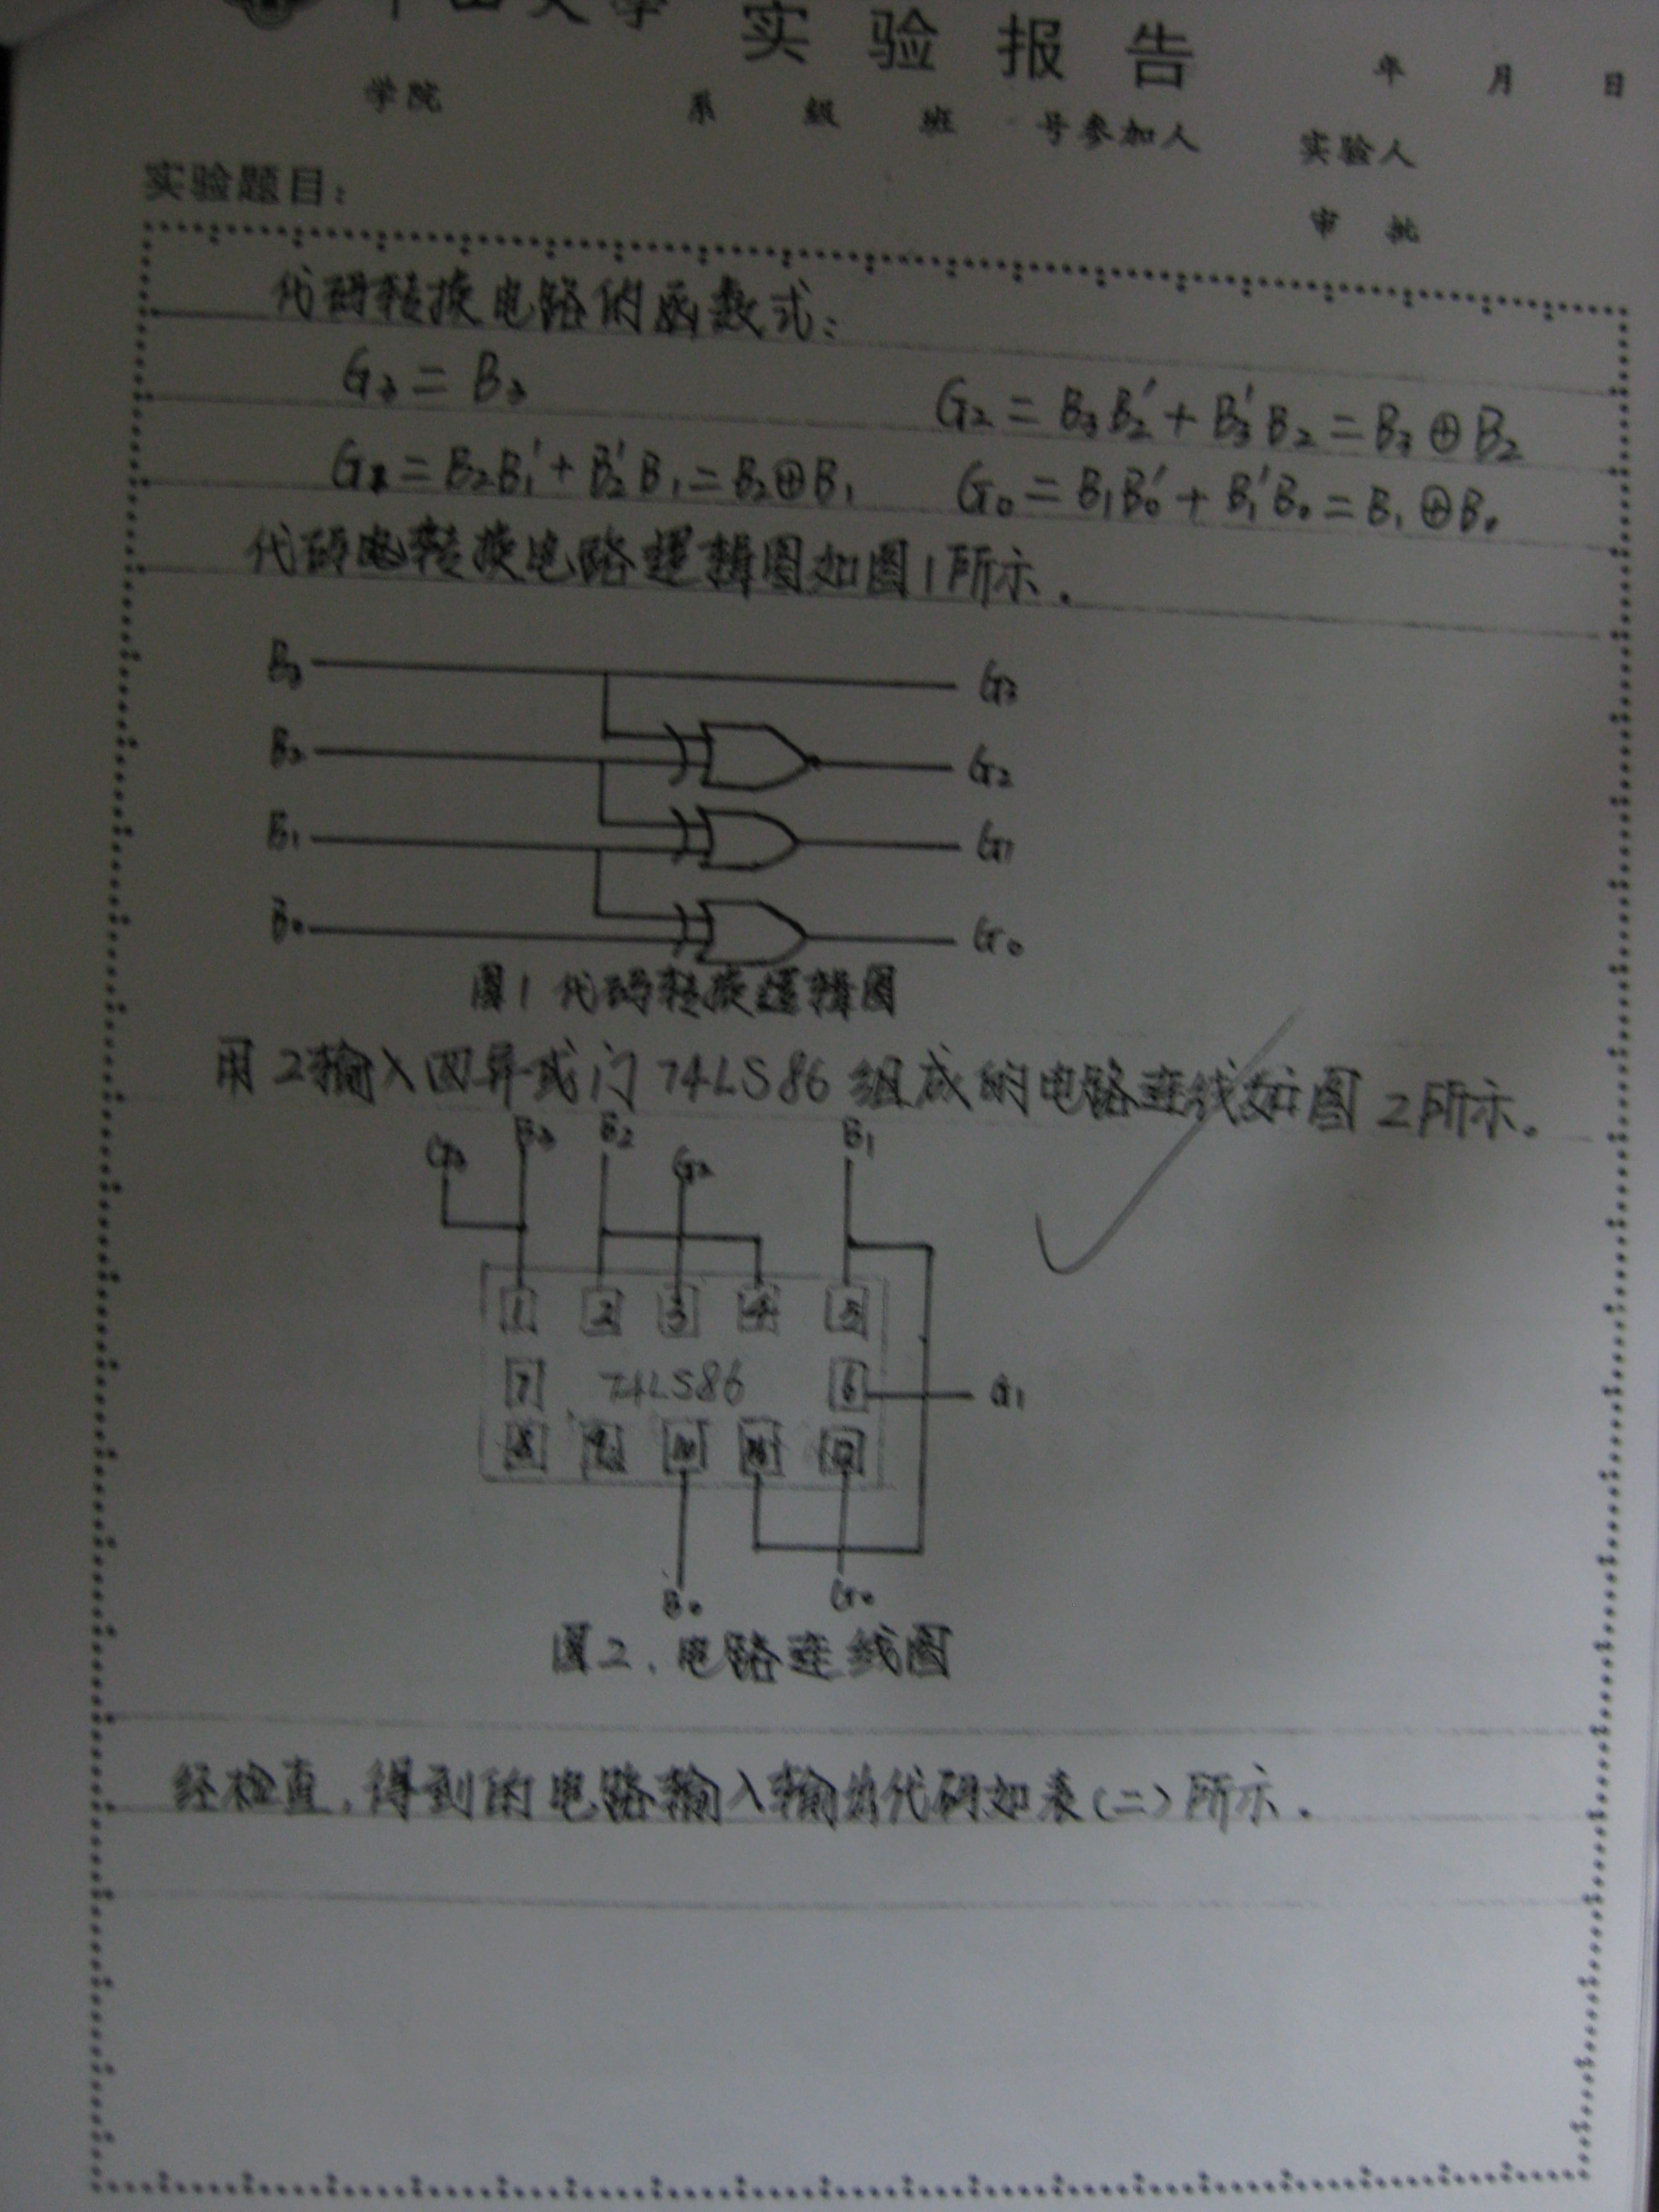 大学 实验报告
年 月 日
学院 系 级 班 号参加人 实验人
实验题目: 审 批
代码转换电路的函数式:
G₃ = B₃ G₂ = B₃B₂' + B₃'B₂ = B₃⊕B₂
G₁ = B₂B₁' + B₂'B₁ = B₂⊕B₁ G₀ = B₁B₀' + B₁'B₀ = B₁⊕B₀
代码转换电路逻辑图如图1所示.
B₃ G₃
B₂ G₂
B₁ G₁
B₀ G₀
图1 代码转换逻辑图
用2输入四异或门74LS86组成的电路连线如图2所示。
G₃ B₃ B₂ G₂ B₁
1 2 3 4 5
7 74LS86 6 G₁
8 9 10
B₀ G₀
图2. 电路连线图
经检查, 得到的电路输入输出代码如表(二)所示.